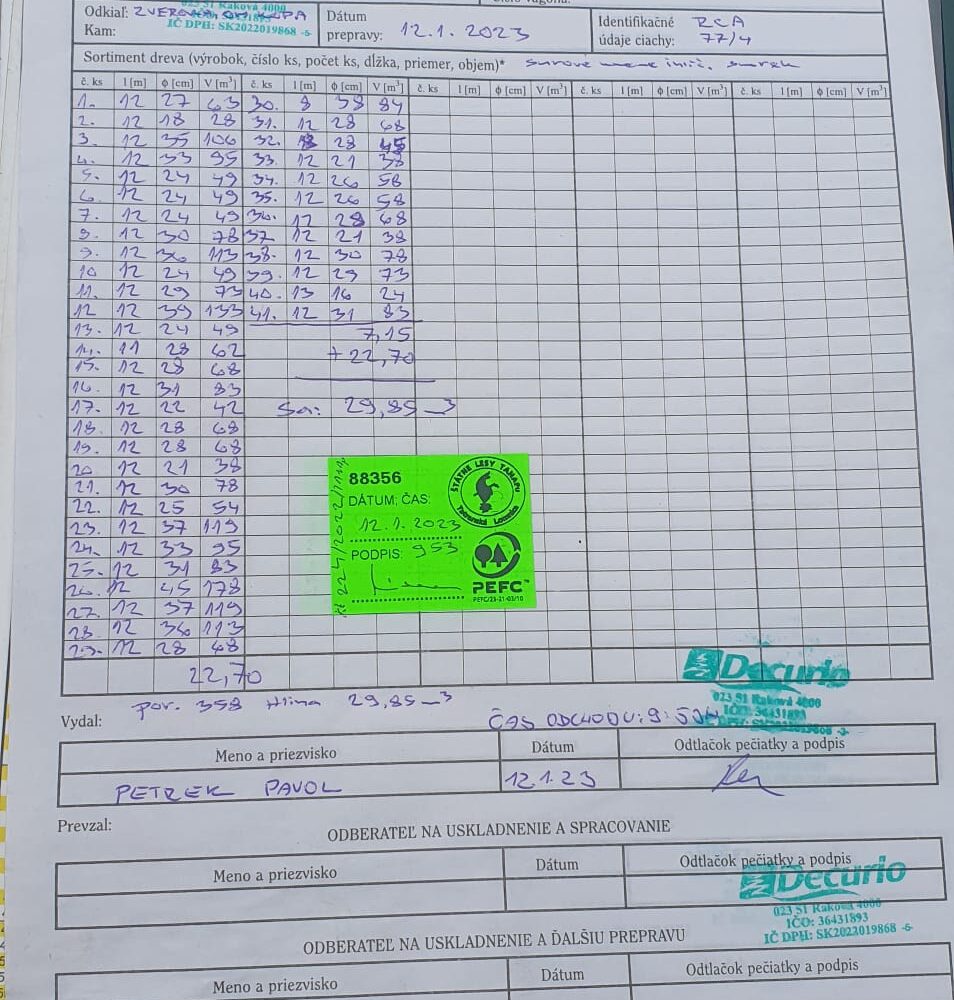 023 51 Raková 4000
IČ DPH: SK2022019868 -6-
Odkiaľ: ZVEROVKA
Kam:
Dátum prepravy: 12.1.2023
Identifikačné údaje ciachy: RCA 77/4
Sortiment dreva (výrobok, číslo ks, počet ks, dĺžka, priemer, objem)* surové smrek
č. ks l [m] ϕ [cm] V [m³] č. ks l [m] ϕ [cm] V [m³] č. ks l [m] ϕ [cm] V [m³] č. ks l [m] ϕ [cm] V [m³] č. ks l [m] ϕ [cm] V [m³]
1. 12 27 63 30. 8 38 84
2. 12 18 28 31. 12 28 68
3. 12 35 106 32. 28 45
4. 12 33 95 33. 12 21 38
5. 12 24 49 34. 12 26 58
6. 12 24 49 35. 12 26 58
7. 12 24 49 36. 12 28 68
8. 12 30 78 37 12 21 38
9. 12 36 113 38. 12 30 78
10 12 24 49 39. 12 29 73
11. 12 29 73 40. 13 16 24
12 12 39 133 41. 12 31 83
13. 12 24 49 7,15
14. 11 28 62 +22,70
15. 12 28 68
16. 12 31 83
17. 12 22 42 Sa: 29,85 m3
18. 12 28 68
19. 12 28 68
20 12 21 38
21. 12 30 78
22. 12 25 54
23. 12 37 119
24. 12 33 95
25. 12 31 83
26. 12 45 178
27. 12 37 119
28. 12 36 113
29. 12 28 68
22,70
88356
DÁTUM: ČAS:
12.1.2023
PODPIS: 953
ŠTÁTNE LESY TANAPU
Tatranská Lomnica
PEFC™
PEFC/23-21-03/10
por. 358 Hlina 29,85 m3
ČAS ODCHODU: 9:50H
Decurio
023 51 Raková 4000
IČO: 36431893
IČ DPH: SK2022019868 -3-
Vydal:
Meno a priezvisko Dátum Odtlačok pečiatky a podpis
PETREK PAVOL 12.1.23
Prevzal:
ODBERATEĽ NA USKLADNENIE A SPRACOVANIE
Meno a priezvisko Dátum Odtlačok pečiatky a podpis
Decurio
023 51 Raková 4000
IČO: 36431893
IČ DPH: SK2022019868 -6-
ODBERATEĽ NA USKLADNENIE A ĎALŠIU PREPRAVU
Meno a priezvisko Dátum Odtlačok pečiatky a podpis